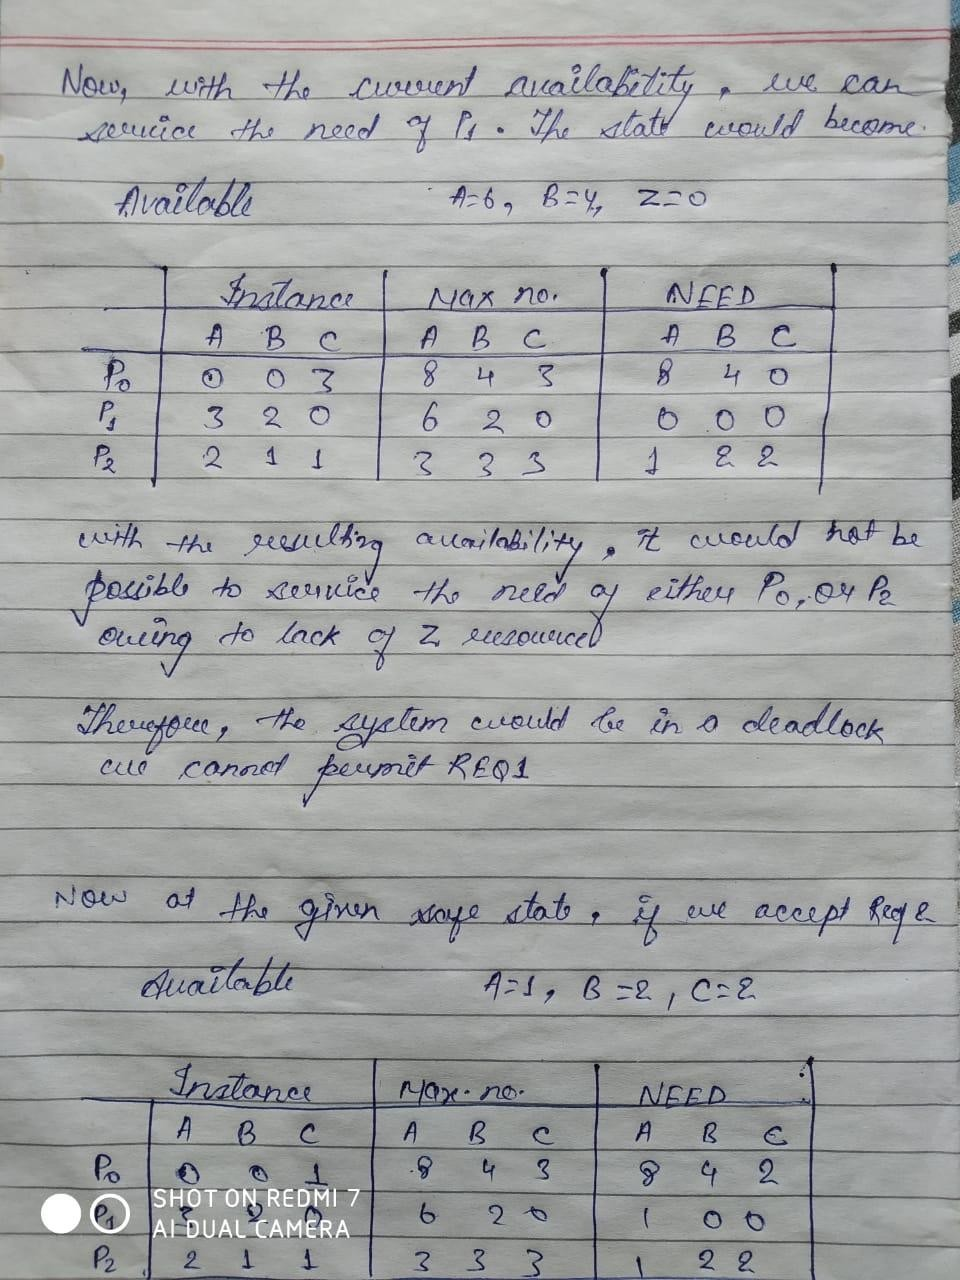 Now, with the current availability, we can
service the need of P1. The state would become.
Available A=6, B=4, Z=0
Instance Max no. NEED
A B C A B C A B C
P0 0 0 3 8 4 3 8 4 0
P1 3 2 0 6 2 0 0 0 0
P2 2 1 1 3 3 3 1 2 2
with the resulting availability, it would not be
possible to service the need of either P0, or P2
owing to lack of Z resources
Therefore, the system would be in a deadlock
we cannot permit REQ1
Now at the given safe state, if we accept Req 2
Available A=1, B=2, C=2
Instance Max. no. NEED
A B C A B C A B C
P0 0 0 1 8 4 3 8 4 2
P1 0 6 2 0 1 0 0
P2 2 1 1 3 3 3 1 2 2
SHOT ON REDMI 7
AI DUAL CAMERA